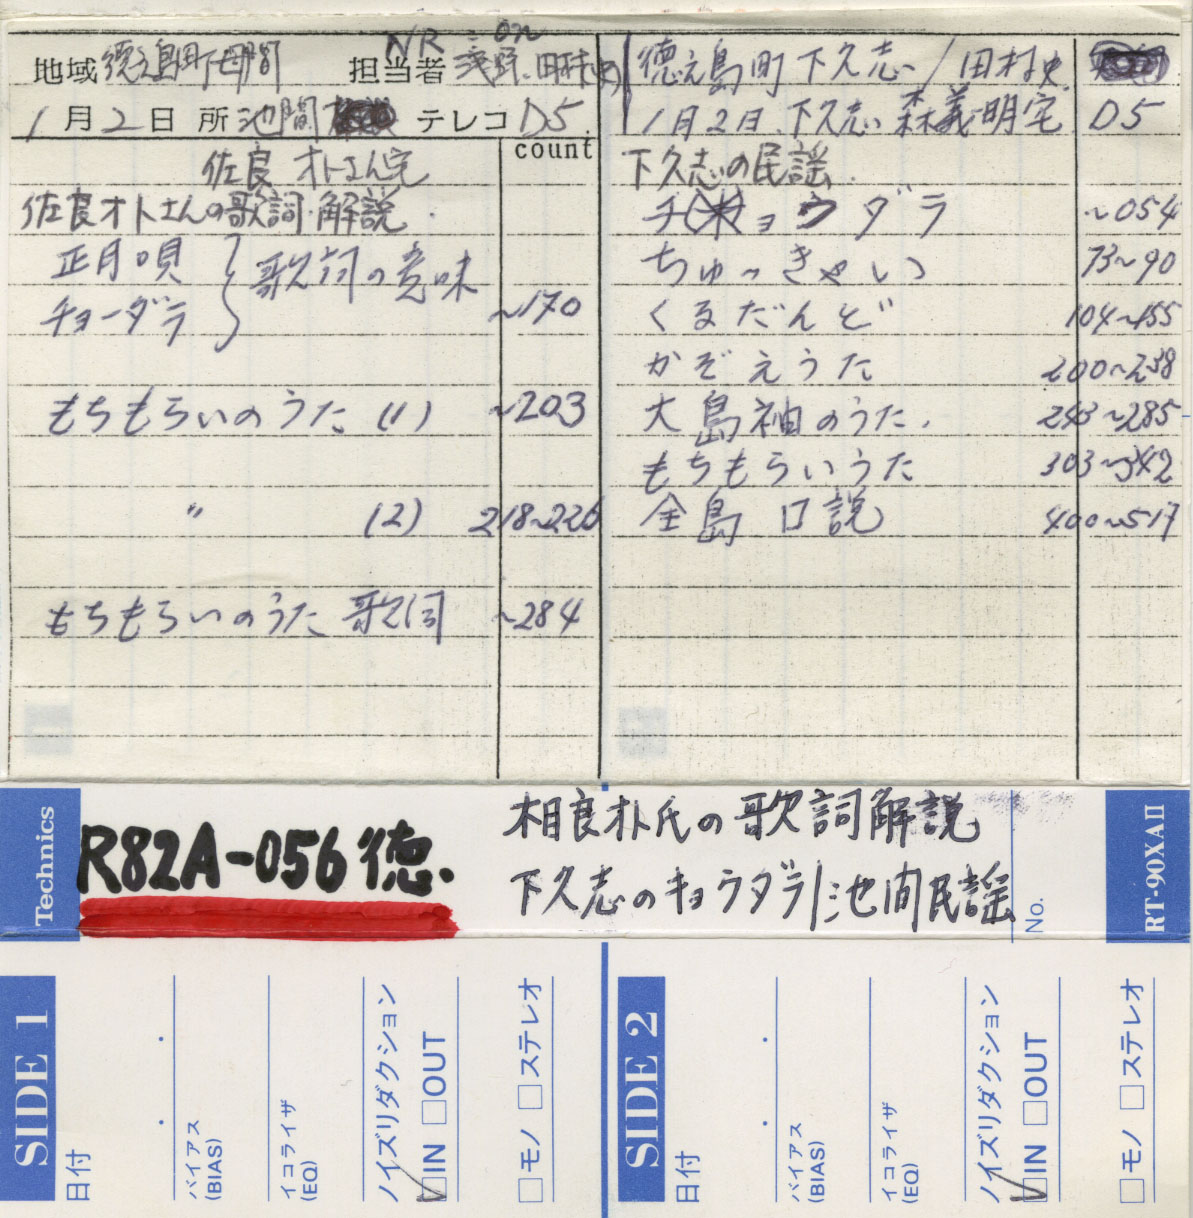 NR=on
地域 徳之島町母間 担当者 浅野、田村(史)
1月2日 所 池間 テレコ D5
count
佐良 オトさん宅
佐良オトさんの歌詞・解説.
正月唄
チョーダラ
歌詞の意味
~170
もちもらいのうた (1) ~203
〃 (2) 218~226
もちもらいのうた 歌詞 ~284
徳之島町 下久志 / 田村史.
1月2日、下久志 森義明宅 D5
下久志の民謡.
チョウダラ ~054
ちゅっきゃい 73~90
くるだんど 104~155
かぞえうた 200~238
大島紬のうた. 243~285
もちもらいうた 303~342
全島口説 400~517
Technics
R82A-056 徳.
相良朴氏の歌詞解説
下久志のキョウダラ/池間民謡
No.
RT-90XAⅡ
SIDE 1
日付
バイアス
(BIAS)
イコライザ
(EQ)
ノイズリダクション
□IN □OUT
□モノ □ステレオ
SIDE 2
日付
バイアス
(BIAS)
イコライザ
(EQ)
ノイズリダクション
□IN □OUT
□モノ □ステレオ